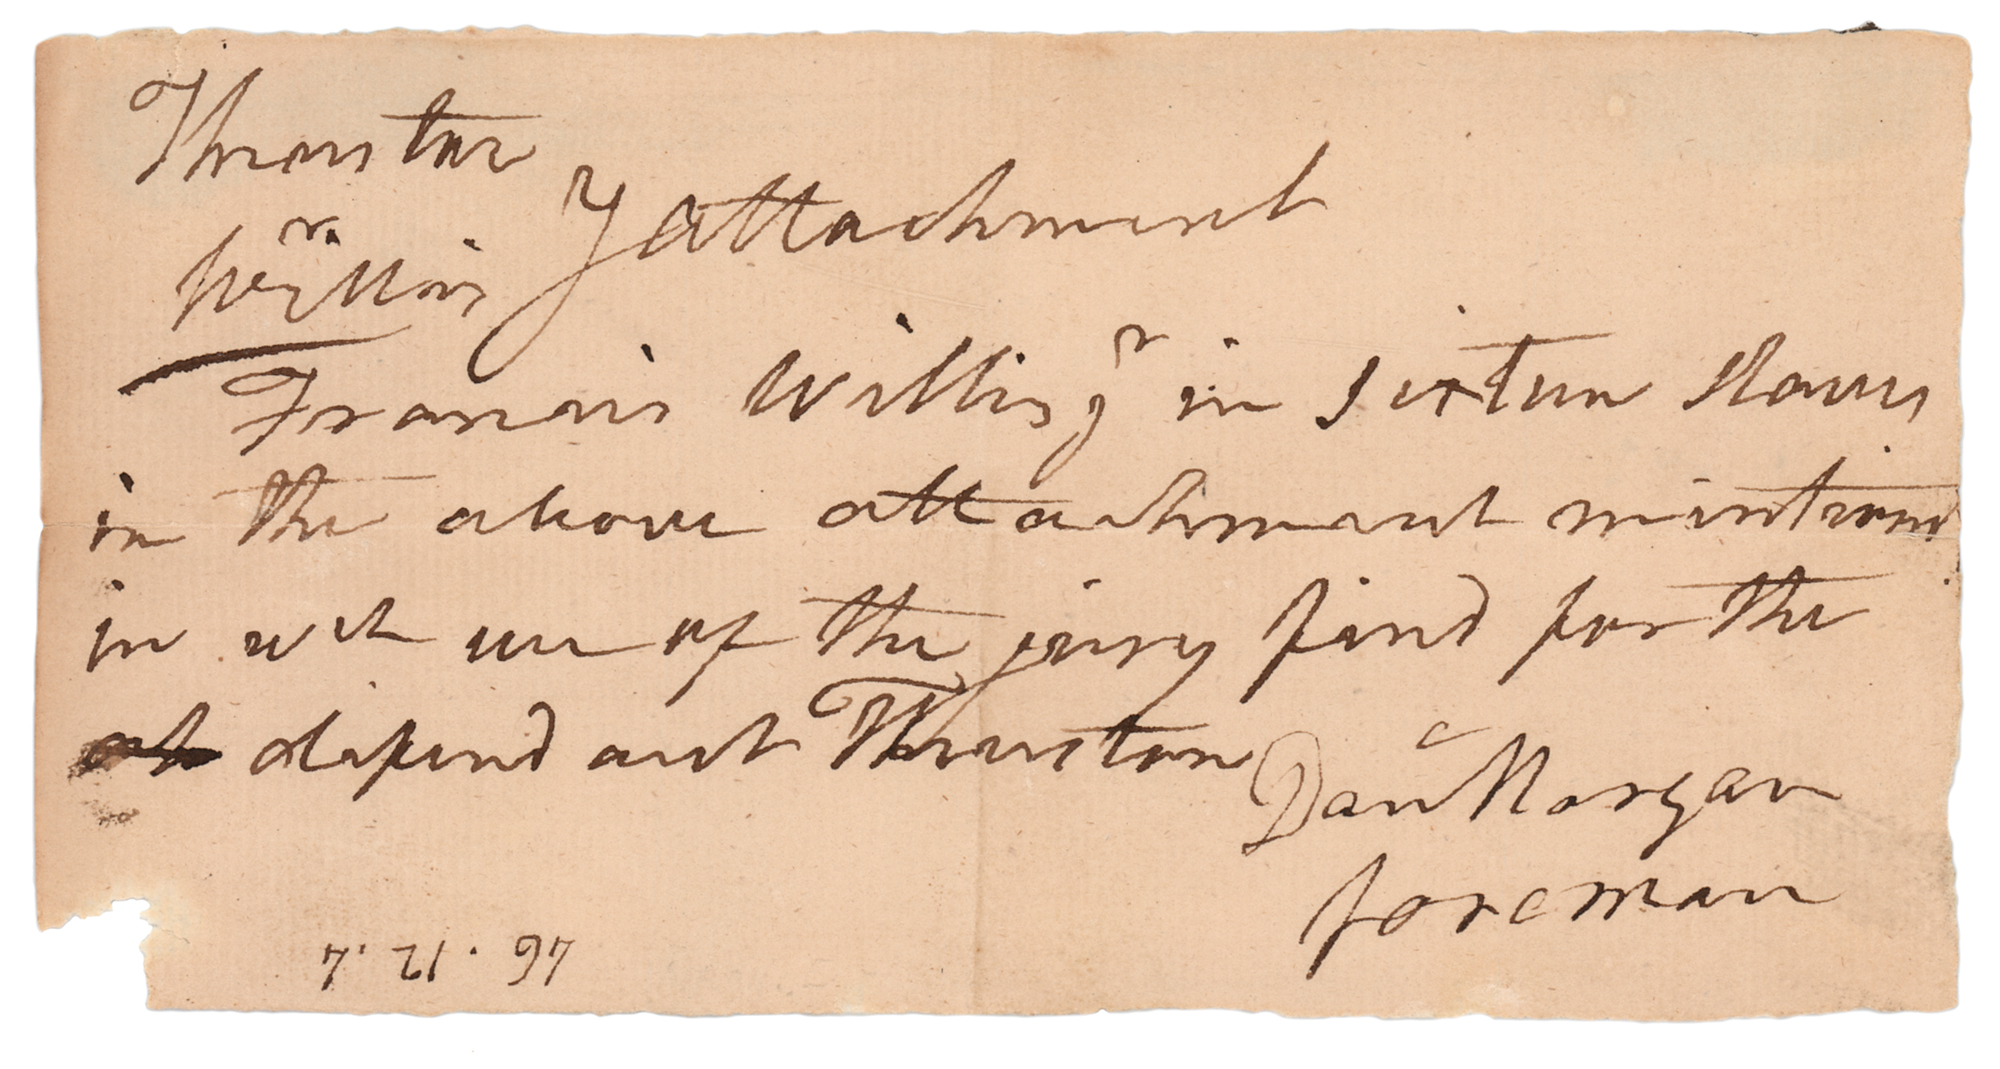 Thruston
} Attachment
Willis
Francis Willis Jr in sixteen Slaves
in the above attachment mintiond
in vet we of the jury find for the
defendant Thruston
Danl Morgan
foreman
46 . 12 . 4